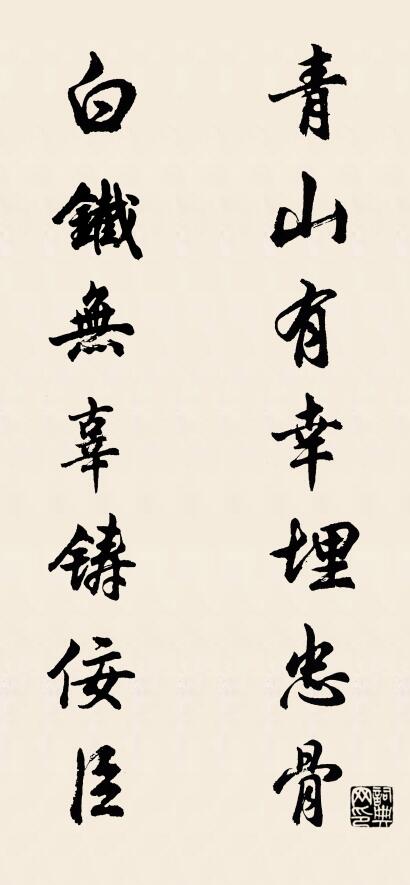 青山有幸埋忠骨
白鐵無辜鑄佞臣
詞典網印